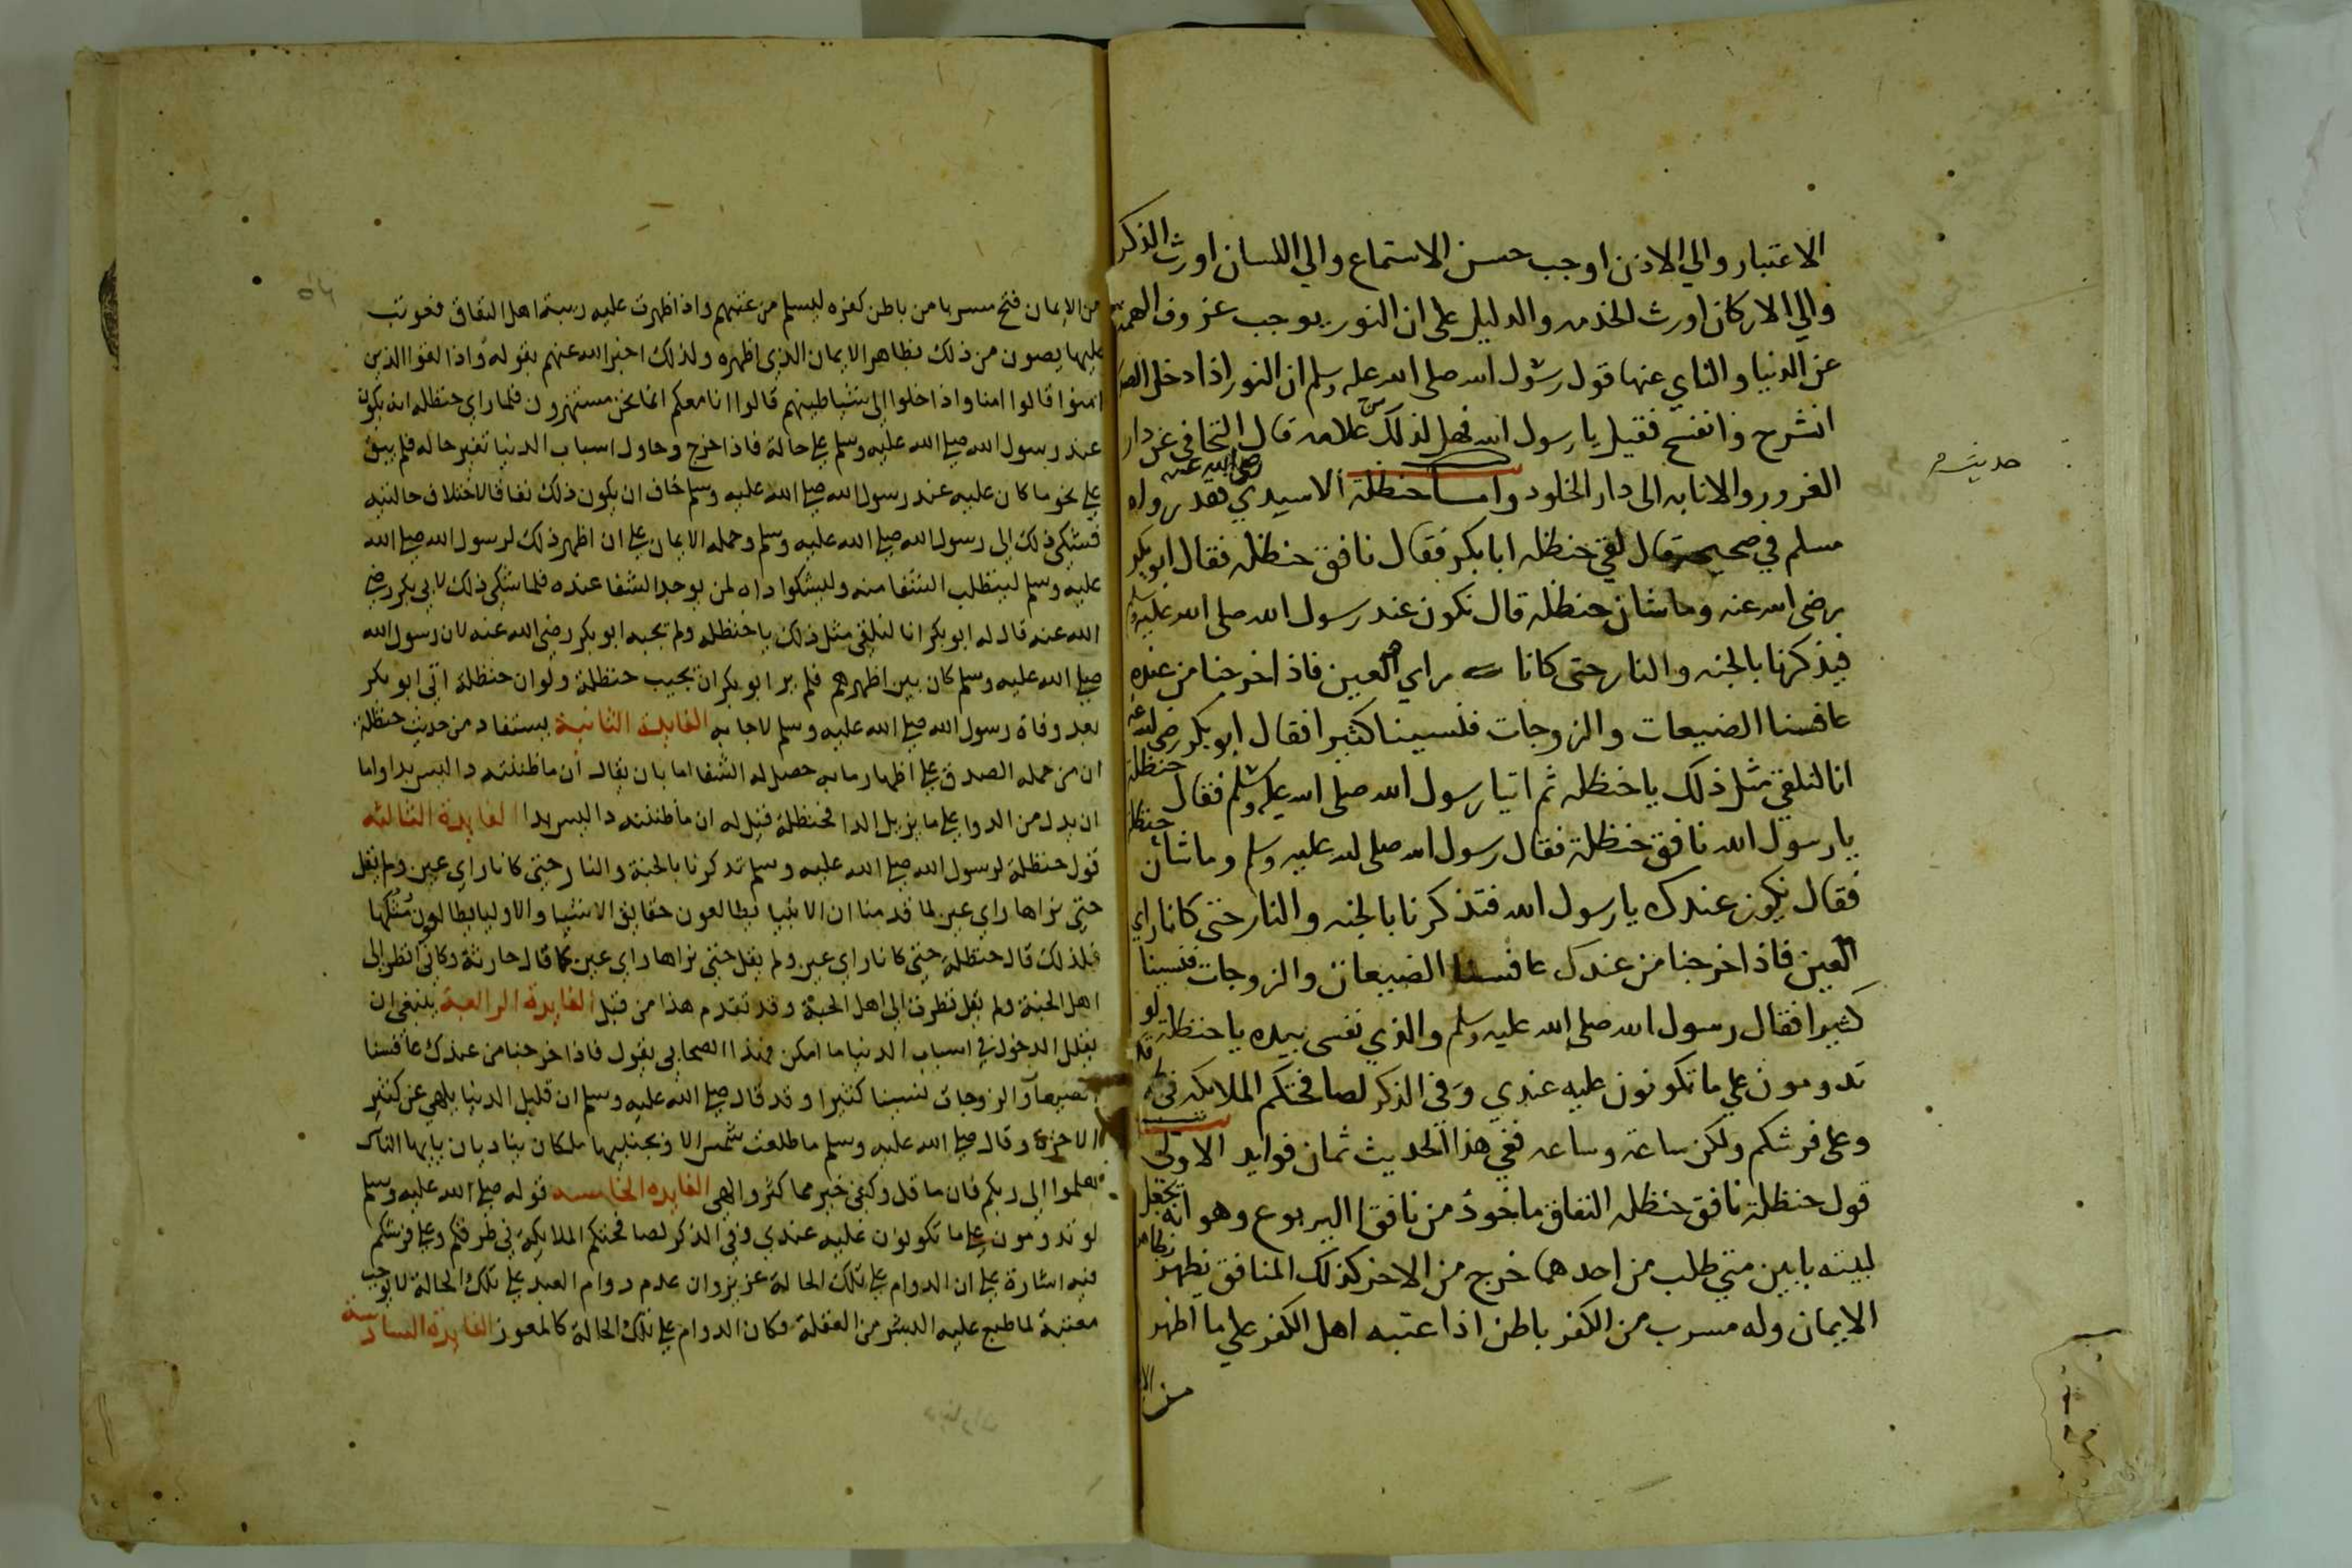 الاعتبار والي الاذن اوجب حسن الاستماع والي اللسان اورث الذكر
والي الاركان اورث الخدمه والدليل علي ان النور يوجب عزوف الهمه
عن الدنيا والناي عنها قول رسول الله صلى الله عليه وسلم ان النور اذا دخل الصدر
انشرح وانفسح فقيل يا رسول الله فهل لذلك من علامه قال التجافي عن دار
الغرور والانابه الى دار الخلود واما حنظلة الاسيدي رضي الله عنه فقد رواه
حديث
مسلم في صحيحه قال لقي حنظله ابا بكر فقال نافق حنظله فقال ابو بكر
رضي الله عنه وما شان حنظله قال نكون عند رسول الله صلى الله عليه وسلم
فيذكرنا بالجنه والنار حتى كانا راي العين فاذا خرجنا من عنده
عافسنا الضيعات والزوجات فنسينا كثيرا فقال ابو بكر رضي الله عنه
انا لنلقي مثل ذلك يا حنظله ثم اتيا رسول الله صلى الله عليه وسلم فقال حنظلة
يا رسول الله نافق حنظلة فقال رسول الله صلى الله عليه وسلم وما شان حنظلة
فقال نكون عندك يا رسول الله فتذكرنا بالجنه والنار حتى كانا راي
العين فاذا خرجنا من عندك عافسنا الضيعات والزوجات فنسينا
كثيرا فقال رسول الله صلى الله عليه وسلم والذي نفسي بيده يا حنظلة لو
تدومون علي ما تكونون عليه عندي وفي الذكر لصافحتكم الملايكه في طرقكم
وعلى فرشكم ولكن ساعة وساعه ففي هذا الحديث ثمان فوايد الاولى
قول حنظلة نافق حنظله النفاق ماخوذ من نافقا اليربوع وهو انه يجعل
لبيته بابين متي طلب من احدهما خرج من الاخر كذلك المنافق يظهر ظاهر
الايمان وله مسرب من الكفر باطن اذا عتبه اهل الكفر علي ما اظهر
من الا
٥٤
من الايمان فتح مسربا من باطن كفره ليسلم من عتبهم واذا ظهرت عليه ريبة اهل النفاق فعوتب
عليها يصون من ذلك بظاهر الايمان الذي اظهره ولذلك اخبر الله عنهم بقوله واذا لقوا الذين
امنوا قالوا امنا واذا خلوا الى شياطينهم قالوا انا معكم انما نحن مستهزون فلما راي حنظله انه يكون
عند رسول الله صلي الله عليه وسلم علي حالة فاذا خرج وحاول اسباب الدنيا تغير حاله فلم يبق
علي نحو ما كان عليه عند رسول الله صلي الله عليه وسلم خاف ان يكون ذلك نفاقا لاختلاف حالتيه
فشكي ذلك الي رسول الله صلي الله عليه وسلم وحمله الايمان علي ان اظهر ذلك لرسول الله صلي الله
عليه وسلم ليتطلب الشفا منه وليشكوا داه لمن يوجد الشفا عنده فلما شكي ذلك لابي بكر رضي
الله عنه قال له ابو بكر انا لنلقي مثل ذلك يا حنظله ولم يجبه ابو بكر رضي الله عنه لان رسول الله
صلي الله عليه وسلم كان بين اظهرهم فلم ير ابو بكر ان يجيب حنظلة ولو ان حنظلة اتي ابو بكر
بعد وفاة رسول الله صلي الله عليه وسلم لاجابه الفايدة الثانية يستفاد من حديث حنظلة
ان من حمله الصدق علي اظهار ما به حصل له الشفا اما بان يقال ان ما ظننته دا ليس بدا واما
ان يدل من الدوا علي ما يزيل الدا فحنظلة قيل له ان ما ظننته دا ليس بدا الفايدة الثالثه
قول حنظلة لرسول الله صلي الله عليه وسلم تذكرنا بالجنة والنار حتى كانا راي عين ولم يقل
حتى نراها راي عين لما قدمنا ان الانبيا يطالعون حقايق الاشيا والاوليا يطالعون مثلها
فلذلك قال حنظلة حتى كانا راي عين ولم يقل حتى نراها راي عين كما قال حارثة وكاني انظر الي
اهل الجنة ولم يقل نظرت الي اهل الجنة وقد تقدم هذا من قبل الفايدة الرابعة ينبغي ان
يقلل الدخول في اسباب الدنيا ما امكن فهذا الصحابي يقول فاذا خرجنا من عندك عافسنا
الضيعات والزوجات نسينا كثيرا وقد قال صلي الله عليه وسلم ان قليل الدنيا يلهي عن كثير
الاخرة وقال صلي الله عليه وسلم ما طلعت شمس الا وبجنبيها ملكان يناديان يايها الناس
هلموا الي ربكم فان ما قل وكفي خير مما كثر والهى الفايده الخامسه قوله صلي الله عليه وسلم
لو تدومون علي ما تكونون عليه عندي وفي الذكر لصافحتكم الملايكة في طرقكم وعلي فرشكم
فيه اشارة علي ان الدوام علي تلك الحالة عزيز وان عدم دوام العبد علي تلك الحالة لا يوجب
معتبة لما طبع عليه البشر من الغفلة فكان الدوام علي تلك الحالة كالمعوز الفايدة السادسة